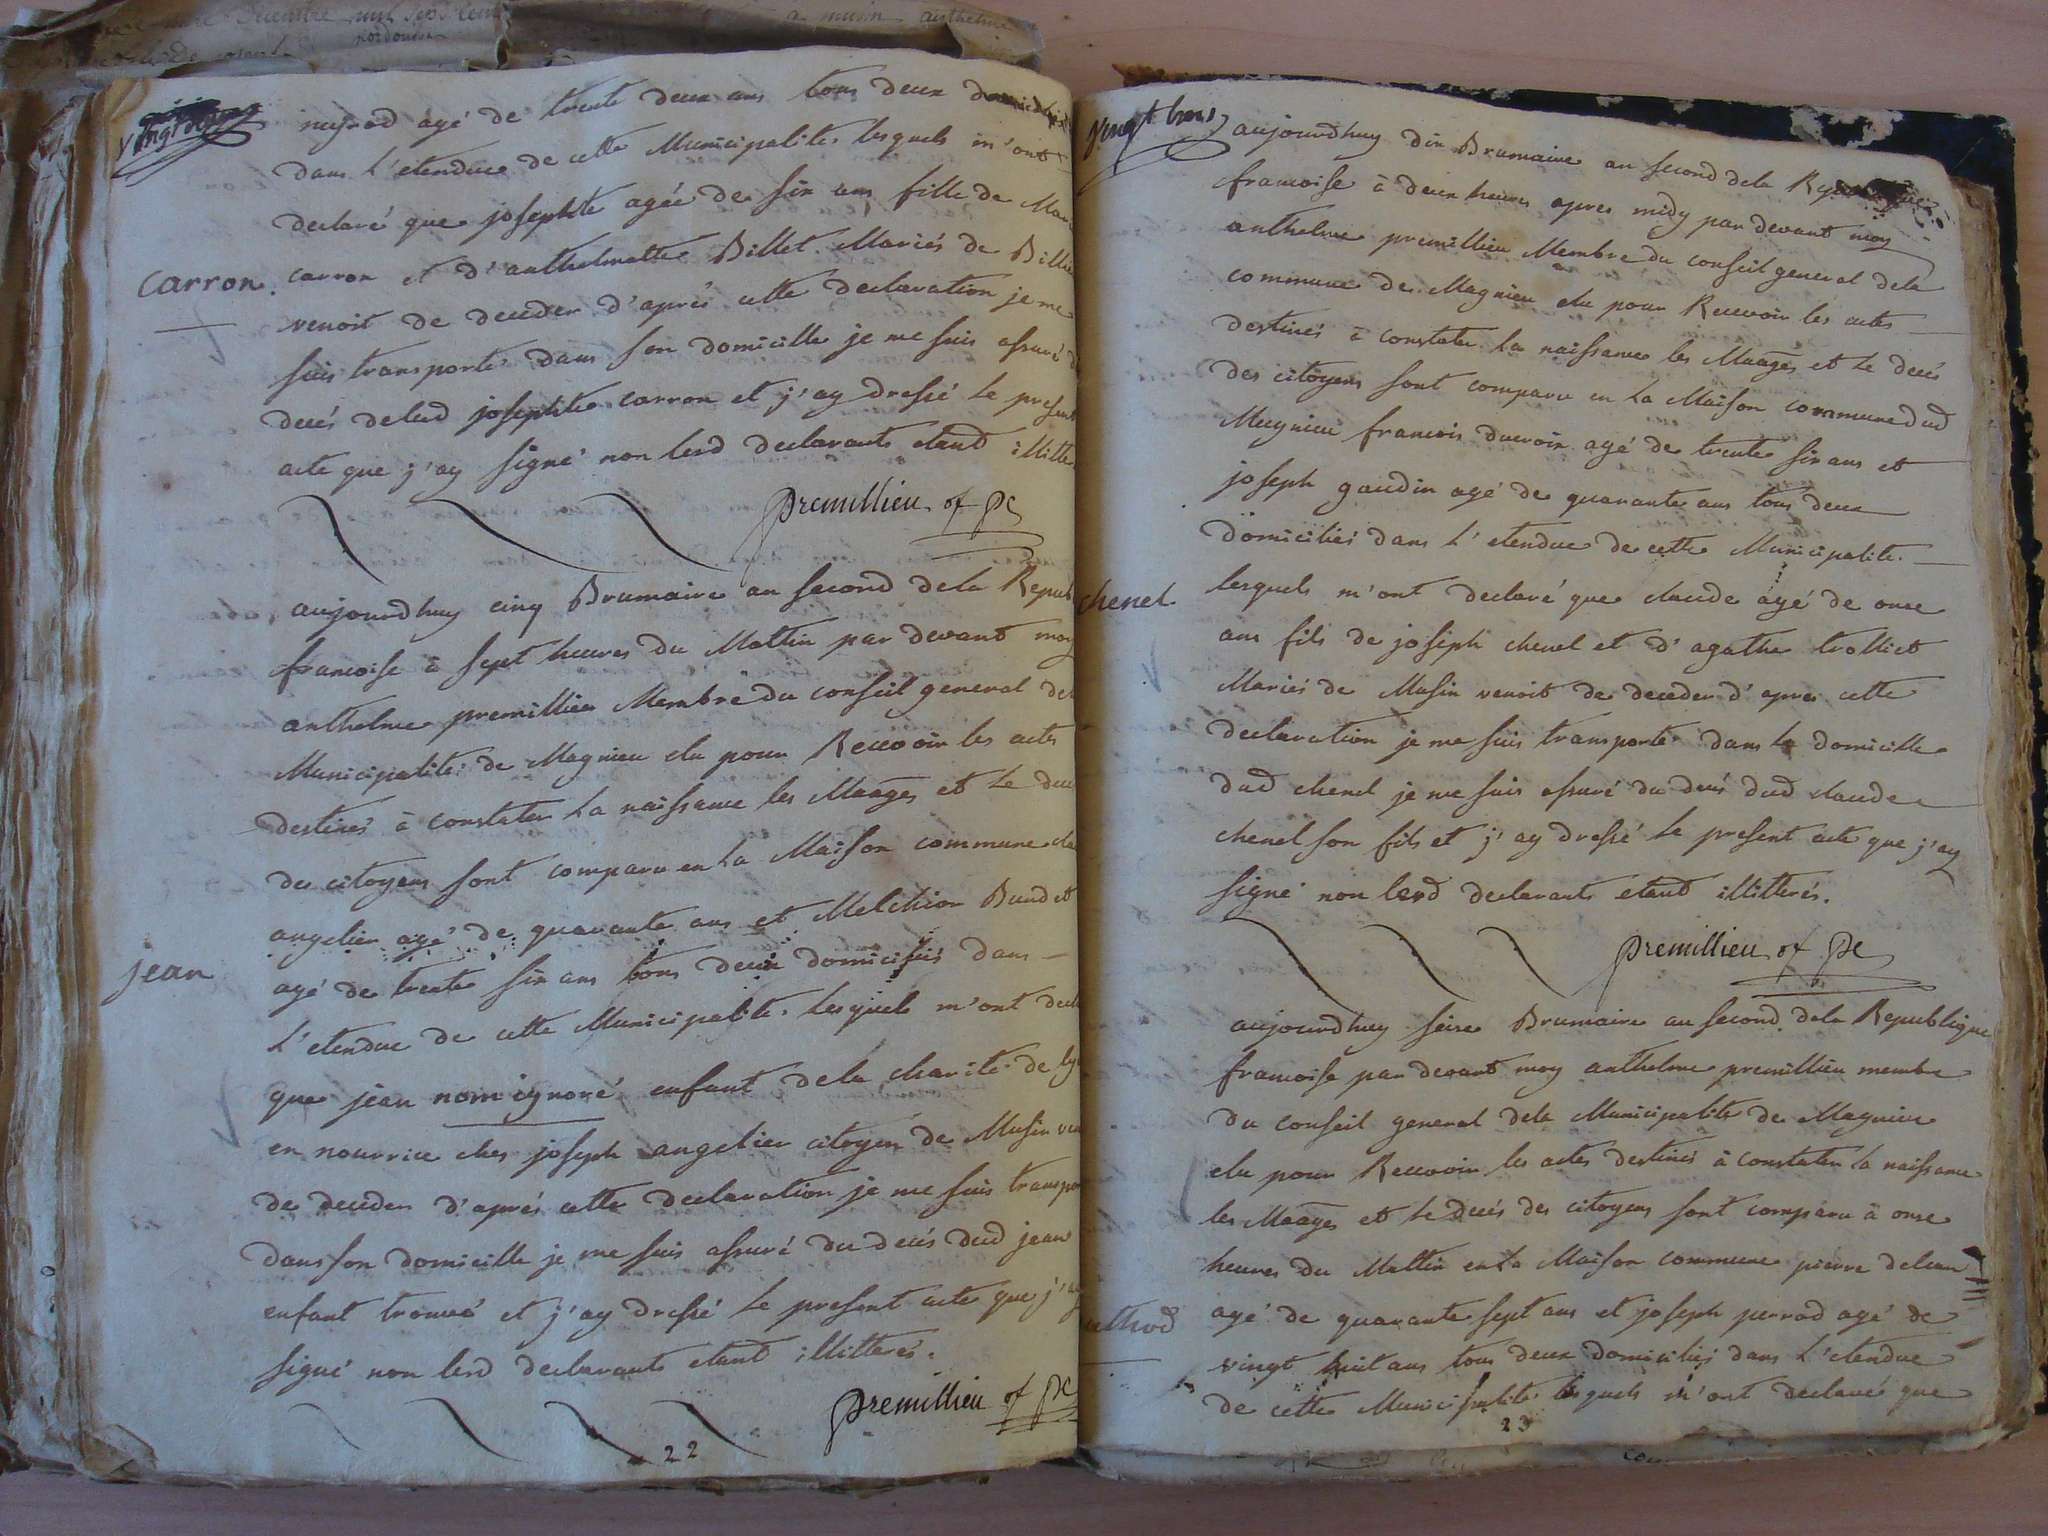 vingt deux
neyrod agé de trente deux ans tous deux domiciliés
dans l'etendue de cette Municipalité lesquels m'ont
declaré que josephte agée de six ans fille de
Carron
carron et d'anthelmette Billet Mariés de
venoit de deceder d'aprés cette declaration je me
suis transporté dans son domicille je me suis assuré
decés delad josephte carron et j'ay dressé le present
acte que j'ay signé non lesd declarants etant
premillieu of pc
aujourdhuy cinq Brumaire an second dela
francoise à sept heures du Mattin par devant moy
anthelme premillieu Membre du conseil general
Municipalité de Magnieu elu pour Recevoir les actes
destinés à constater La naissance les Maages et Le
des citoyens sont comparu en La Maison commune
angelier agé de quarante ans et Melchior
jean
agé de trente six ans tous deux domiciliés dans
L'etendue de cette Municipalité Lesquels m'ont
que jean nom ignoré enfant dela charité de
en nourrice ches joseph angelier citoyen de Musin
de deceder d'aprés cette declaration je me suis
dans son domicille je me suis assuré du decés dud jean
enfant trouvé et j'ay dressé Le present acte que
signé non lesd declarants etant illitterés.
premillieu of pc
22
vingt trois
aujourdhuy dix Brumaire an second dela
francoise à deux heures apres midy par devant moy
anthelme premillieu Membre du conseil general dela
commune de Magnieu elu pour Recevoir les actes
destinés à constater La naissance les Maages et Le decés
des citoyens sont comparu en La Maison commune dud
Magnieu francois ducroix agé de trente six ans et
joseph gaudin agé de quarante ans tous deux
domiciliés dans L'etendue de cette Municipalité
chenel
lesquels m'ont declaré que claude agé de onse
ans fils de joseph chenel et d'agathe trolliet
Mariés de Musin venoit de deceder d'apres cette
declaration je me suis transporté dans Le domicille
dud chenel je me suis assuré du decés dud claude
chenel son fils et j'ay dressé Le present acte que j'ay
signé non lesd declarants etant illitterés.
premillieu of pc
aujourdhuy seise Brumaire an second dela Republique
francoise par devant moy anthelme premillieu membre
du conseil general dela Municipalité de Magnieu
elu pour Recevoir les actes destinés à constater La naissance
les Maages et Le decés des citoyens sont comparu à onse
heures du Mattin en La Maison commune pierre
agé de quarante sept ans et joseph perrod agé de
vingt huit ans tous deux domiciliés dans L'etendue
de cette Municipalité lesquels m'ont declaré que
23